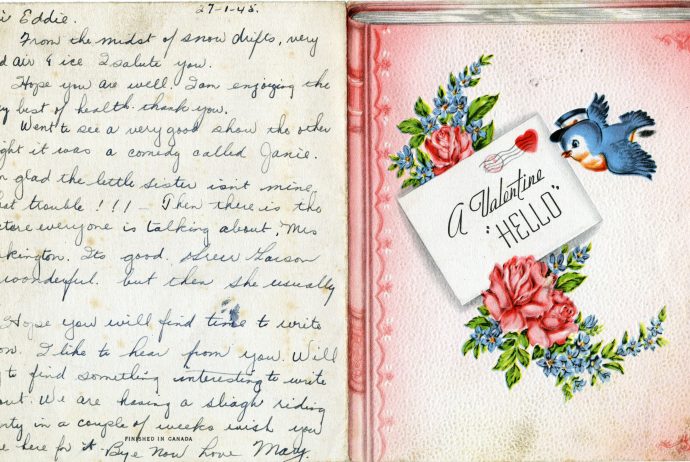 27-1-45.
Eddie.
From the midst of snow drifts, very
air & ice I salute you.
Hope you are well. I am enjoying the
best of health thank you.
Went to see a very good show the other
ight it was a comedy called Janie.
glad the little sister isnt mine,
trouble!!! - Then there is the
cture everyone is talking about, "Mrs
kington. Its good. Greer Garson
wonderful. but then she usually
Hope you will find time to write
on. I like to hear from you. Will
to find something interesting to write
out. We are having a sleigh riding
rty in a couple of weeks wish you
here for it. Bye Now Love Mary.
FINISHED IN CANADA
A Valentine
"HELLO"